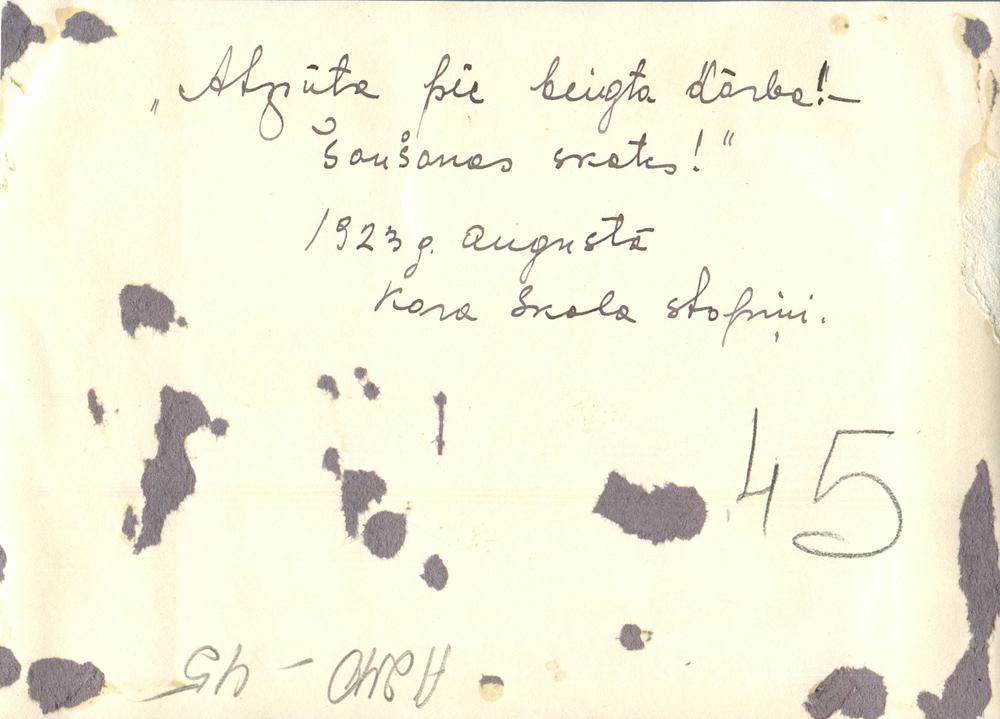 „Atpūta pie beigta dārba!—
Šaušanas skats!“
1923 g. augustā
Kara skola stopiņi.
45
A240 - 45